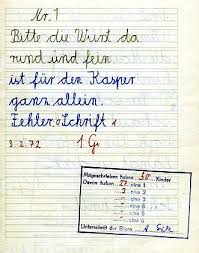 Nr. 1
Bitte die Wurst da
rund und fein
ist für den Kasper
ganz allein.
Fehler: Schrift: 1
3.2.72 1 G
Mitgeschrieben haben 30 Kinder
Davon haben 27 eine 1
3 eine 2
eine 3
eine 4
eine 5
eine 6
Unterschrift der Eltern